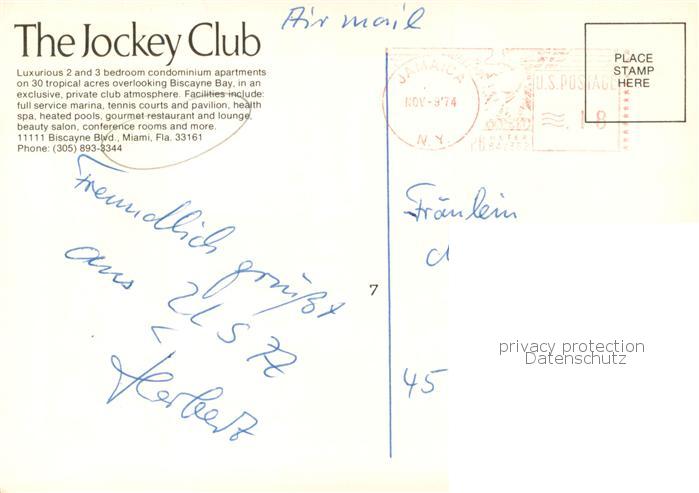 Air mail
The Jockey Club
Luxurious 2 and 3 bedroom condominium apartments
on 30 tropical acres overlooking Biscayne Bay, in an
exclusive, private club atmosphere. Facilities include:
full service marina, tennis courts and pavilion, health
spa, heated pools, gourmet restaurant and lounge,
beauty salon, conference rooms and more.
11111 Biscayne Blvd., Miami, Fla. 33161
Phone: (305) 893-3344
JAMAICA
NOV-8'74
N.Y.
U.S. POSTAGE
.18
PLACE
STAMP
HERE
Freundlich grüßt
aus
Herbert
7
Fräulein
d
45
privacy protection
Datenschutz